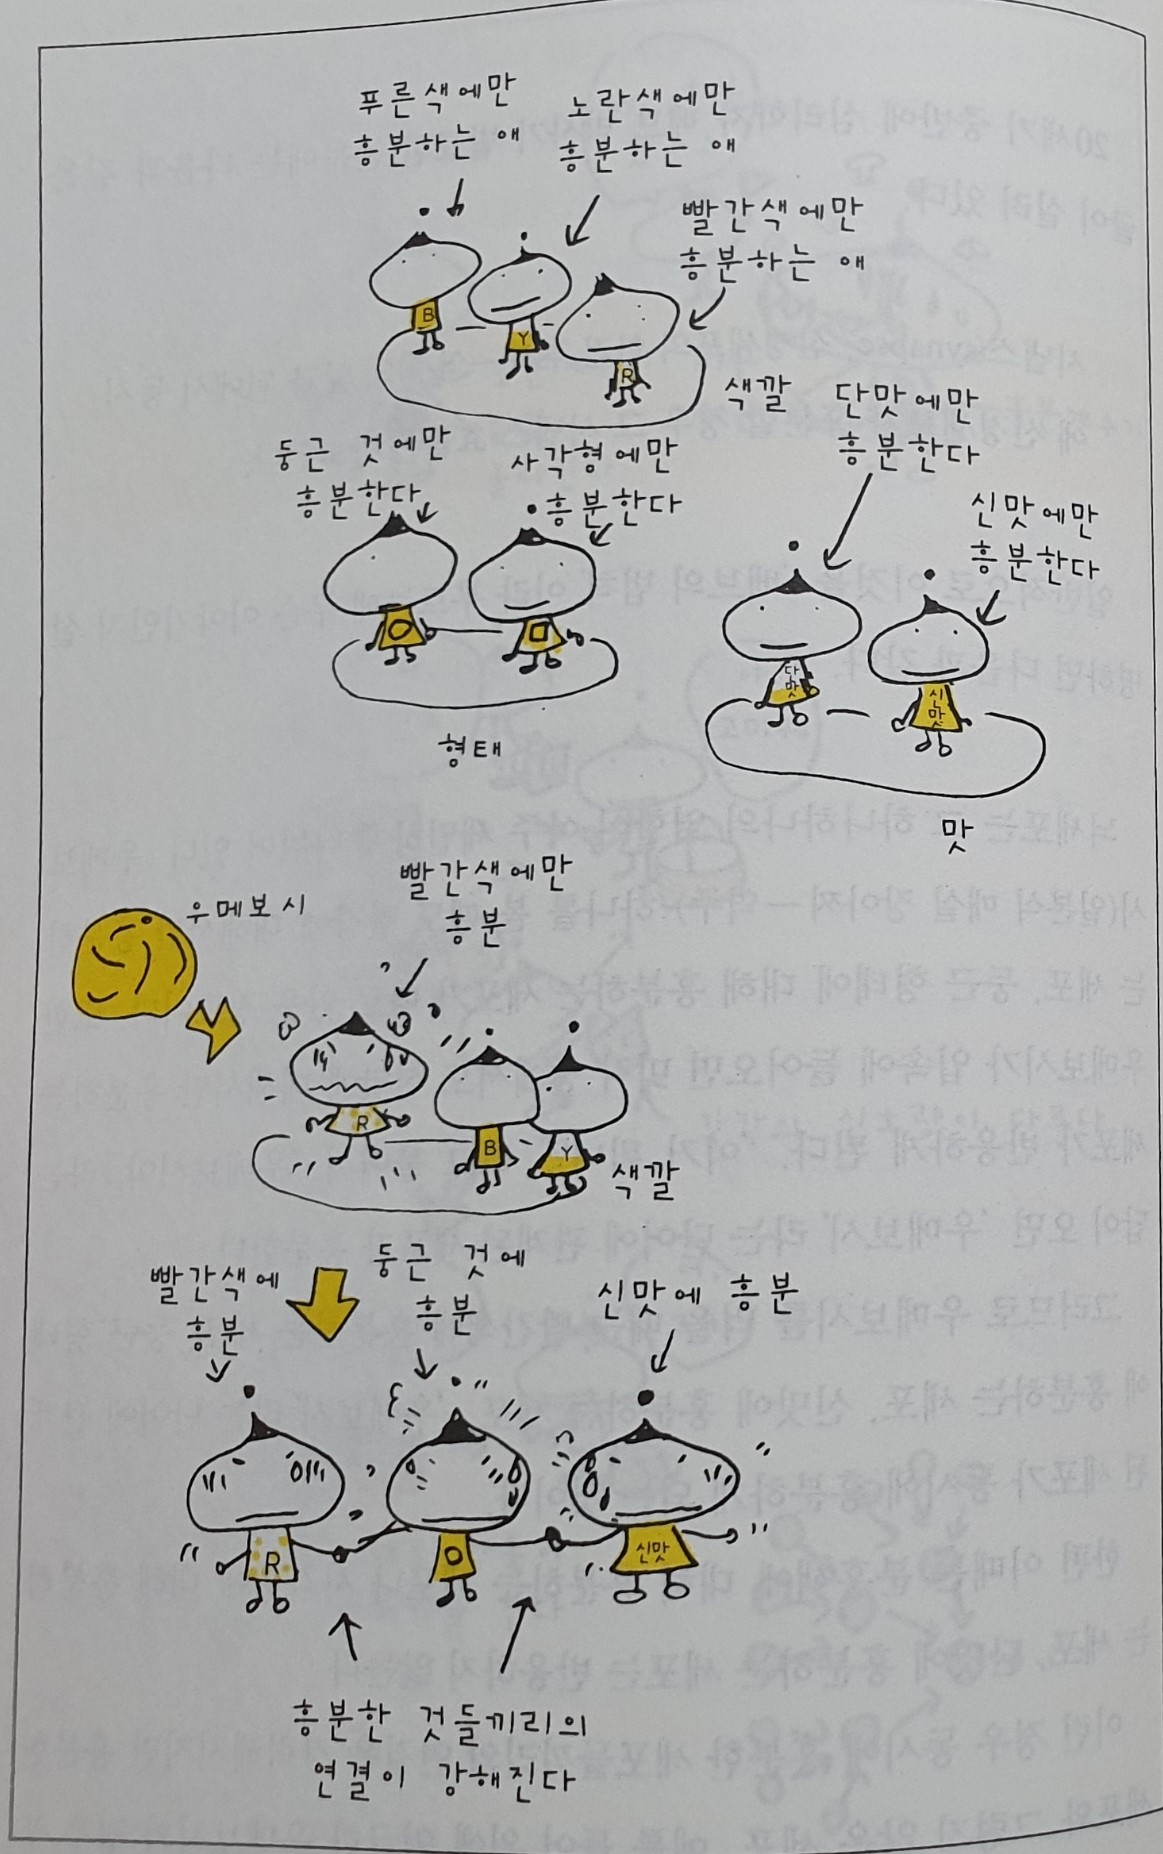 푸른색에만
흥분하는 애
노란색에만
흥분하는 애
빨간색에만
흥분하는 애
B
Y
R
색깔
둥근 것에만
흥분한다
사각형에만
흥분한다
형태
단맛에만
흥분한다
신맛에만
흥분한다
단맛
신맛
맛
우메보시
빨간색에만
흥분
R
B
Y
색깔
빨간색에
흥분
둥근 것에
흥분
신맛에 흥분
R
신맛
흥분한 것들끼리의
연결이 강해진다